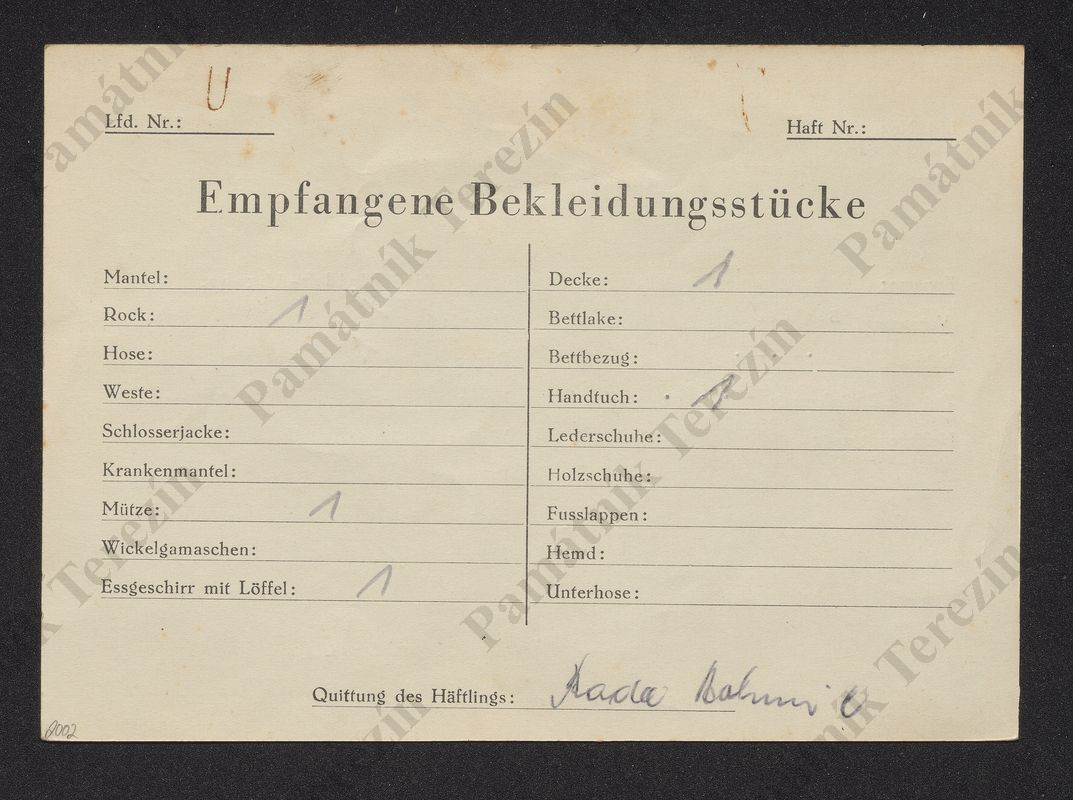 U
Lfd. Nr.:
Haft Nr.:
Empfangene Bekleidungsstücke
Mantel:
Rock: 1
Hose:
Weste:
Schlosserjacke:
Krankenmantel:
Mütze: 1
Wickelgamaschen:
Essgeschirr mit Löffel: 1
Decke: 1
Bettlake:
Bettbezug:
Handtuch: 1
Lederschuhe:
Holzschuhe:
Fusslappen:
Hemd:
Unterhose:
Quittung des Häftlings:
2002
Památník Terezín